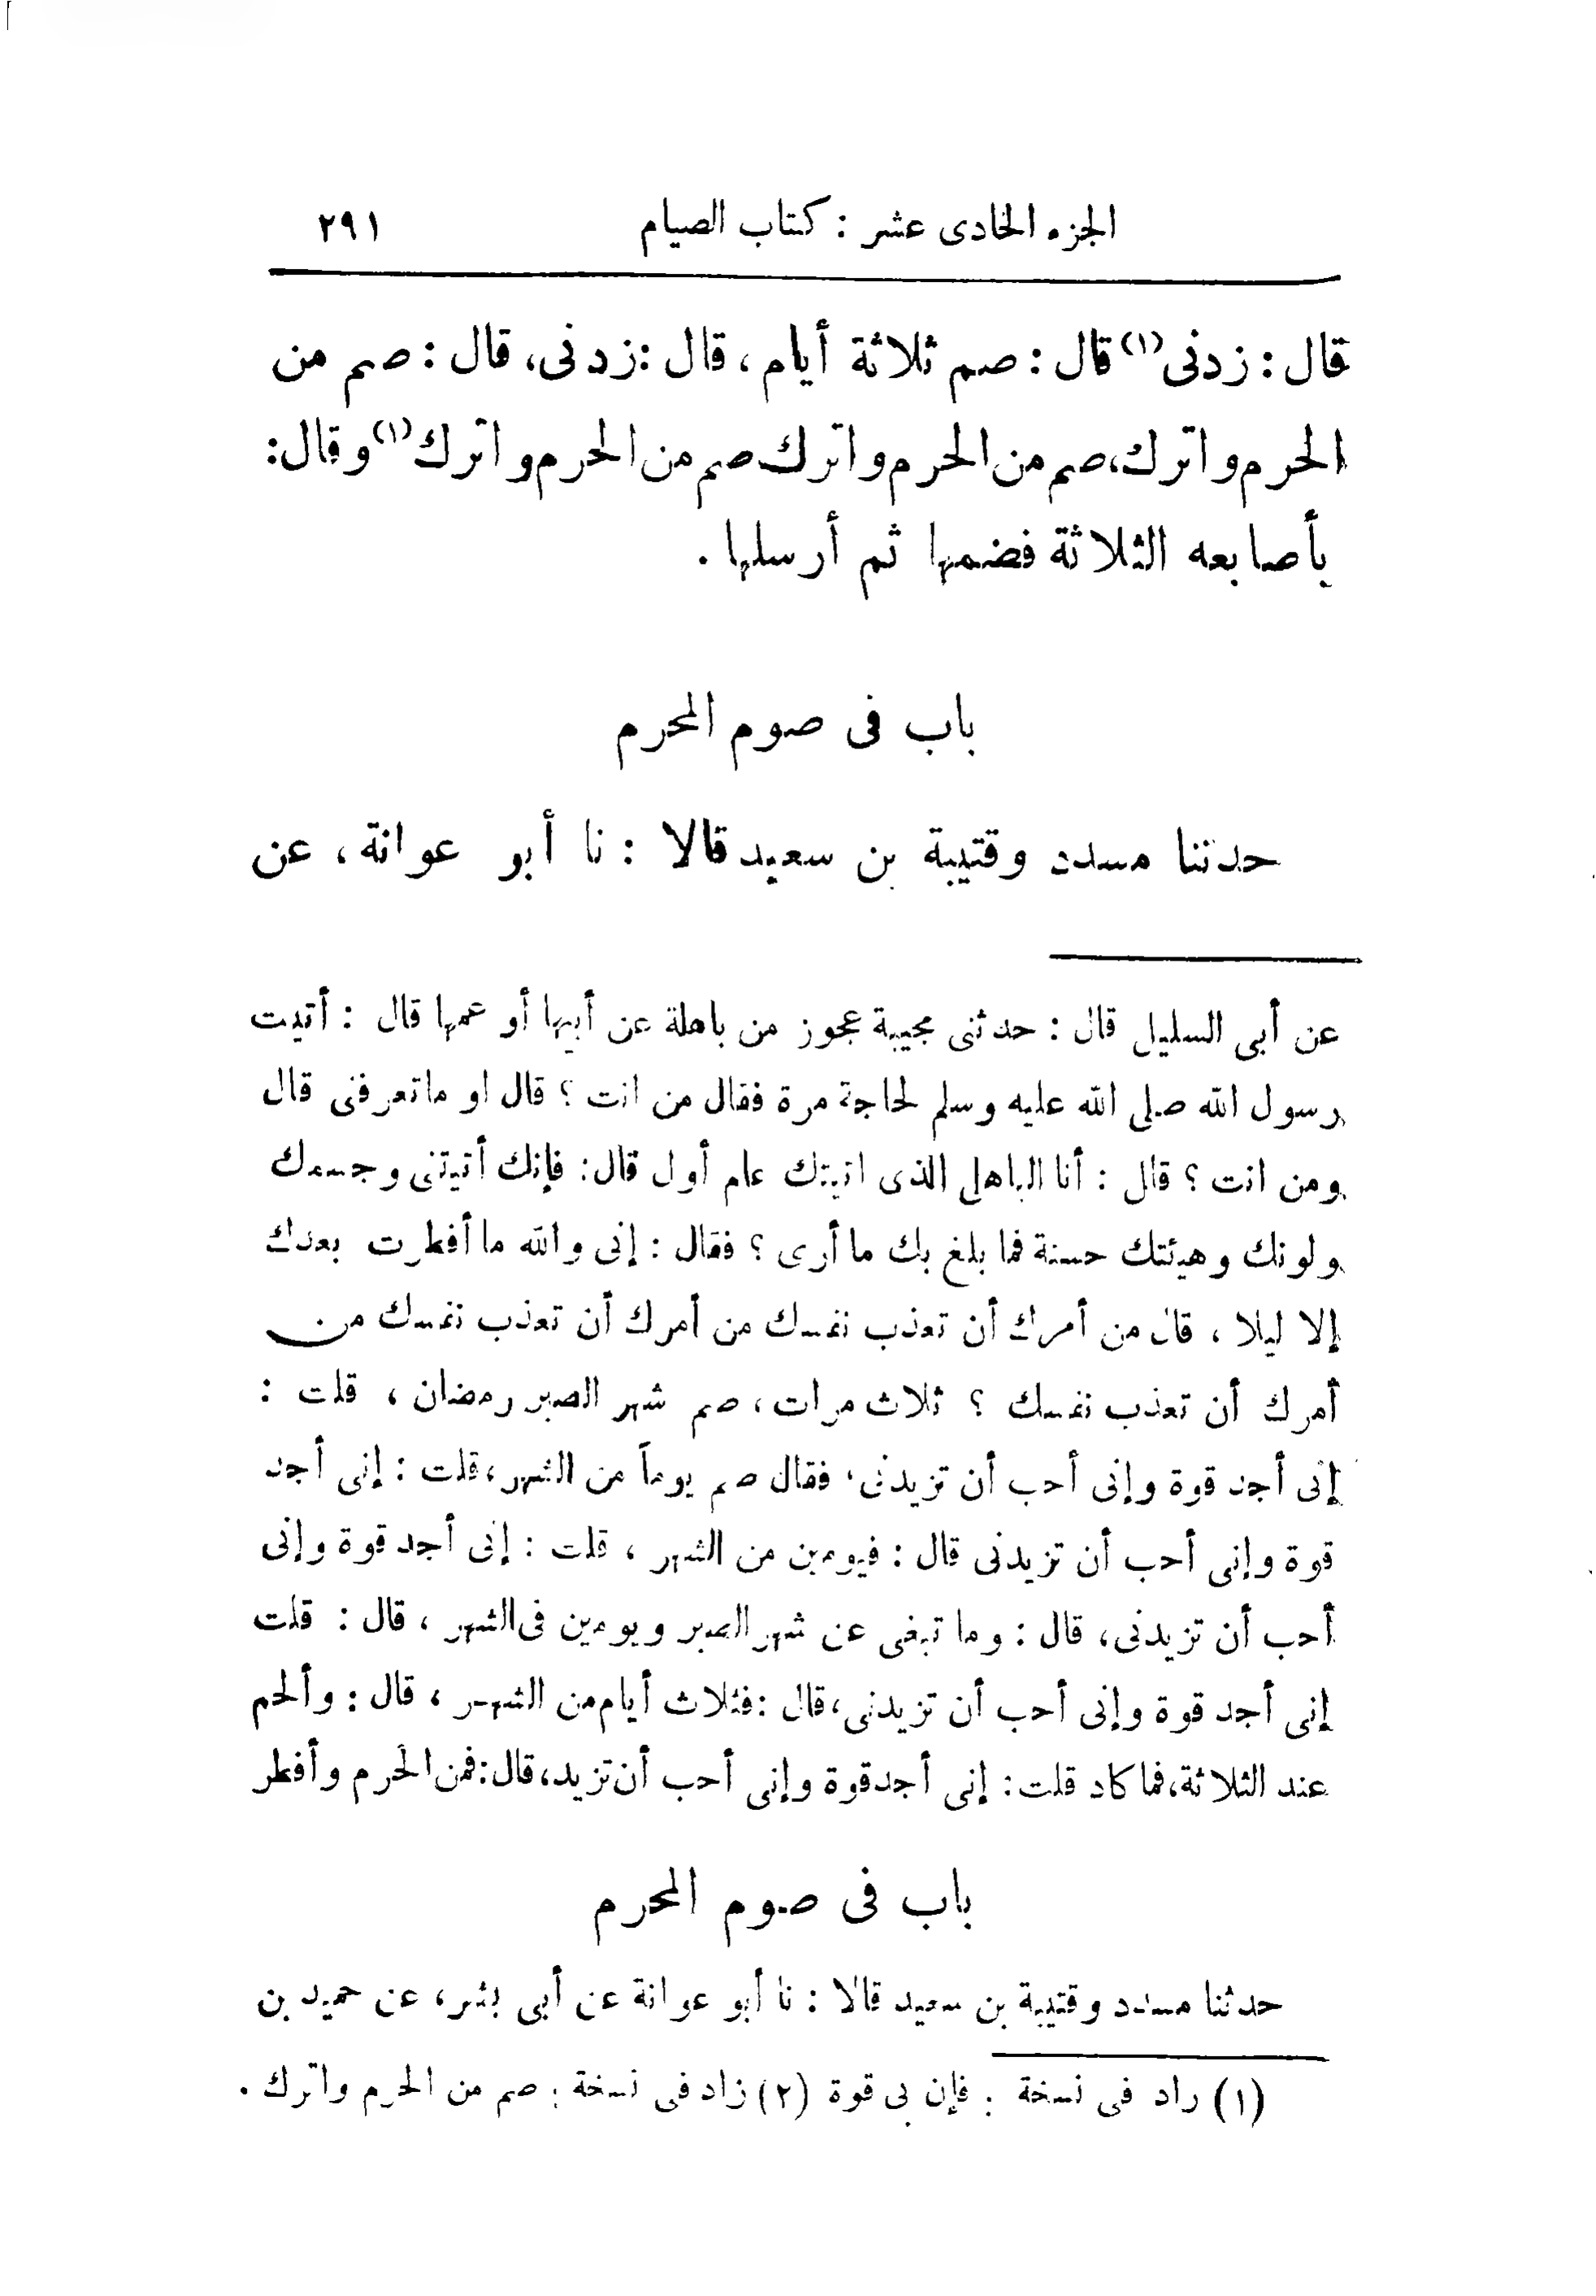 الجزء الحادى عشر : كتاب الصيام ٢٩١
قال : زدنى(١) قال : صم ثلاثة أيام ، قال : زدنى، قال : صم من
الحرم واترك، صم من الحرم واترك صم من الحرم واترك(١) وقال:
بأصابعه الثلاثة فضمها ثم أرسلها .
باب فى صوم المحرم
حدثنا مسدد وقتيبة بن سعيد قالا : نا أبو عوانة ، عن
عن أبى السليل قال : حدثنى مجيبة عجوز من باهلة عن أبيها أو عمها قال : أتيت
رسول الله صلى الله عليه وسلم لحاجة مرة فقال من انت ؟ قال او ماتعرفنى قال
ومن انت ؟ قال : أنا الباهلى الذى اتيتك عام أول قال: فإنك أتيتنى وجسمك
ولونك وهيئتك حسنة فما بلغ بك ما أرى ؟ فقال : إنى والله ما أفطرت بعدك
إلا ليلا ، قال من أمرك أن تعذب نفسك من أمرك أن تعذب نفسك من
أمرك أن تعذب نفسك ؟ ثلاث مرات ، صم شهر الصبر رمضان ، قلت :
إنى أجد قوة وإنى أحب أن تزيدنى، فقال صم يوماً من الشهر ، قلت : إنى أجد
قوة وإنى أحب أن تزيدنى قال : فيومين من الشهر ، قلت : إنى أجد قوة وإنى
أحب أن تزيدنى، قال : وما تبغى عن شهر الصبر ويومين فى الشهر ، قال : قلت
إنى أجد قوة وإنى أحب أن تزيدنى، قال : فثلاث أيام من الشهر ، قال : وألحم
عند الثلاثة، فما كاد قلت : إنى أجد قوة وإنى أحب أن تزيد، قال: فمن الحرم وأفطر
باب فى صوم المحرم
حدثنا مسدد وقتيبة بن سعيد قالا : نا أبو عوانة عن أبى بشر ، عن حميد بن
(١) زاد فى نسخة : فإن بى قوة (٢) زاد فى نسخة : صم من الحرم واترك .